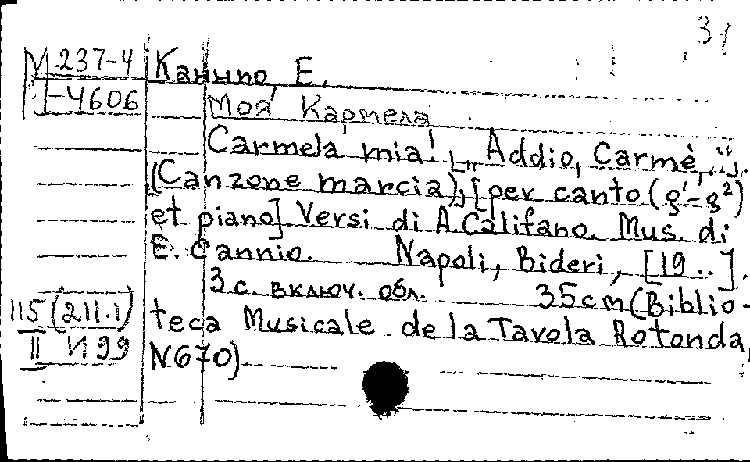 31
М 237-4 Каньио, Е.
I-4606 Моя Кармела
Carmela mia! [„Addio, Carmè,"].
(Canzone marcia), [per canto (g'-g²)
et piano] Versi di A. Califano. Mus. di
E. Cannio. Napoli, Bideri, [19..].
3 с. включ. обл. 35cm (Biblio-
115 (211.1) teca Musicale de la Tavola Rotonda,
II И 99 N670)